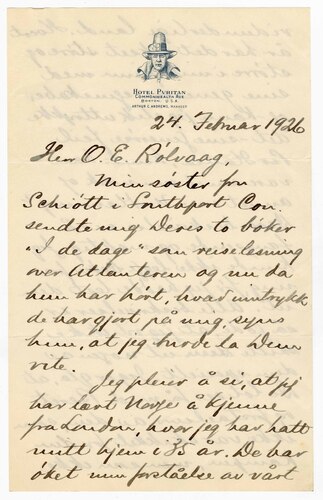 HOTEL PVRITAN
COMMONWEALTH AVE
BOSTON, U.S.A.
ARTHUR C. ANDREWS, MANAGER
24. Februar 1926
Herr O. E. Rölvaag,
Min søster fru
Schiött i Southport Con.
sendte mig Deres to bøker
"I de dage" som reiselesning
over Atlanteren og nu da
hun har hört, hvad inntrykk
de har gjort på mig, syns
hun, at jeg burde la Dem
vite.
Jeg pleier å si, at jeg
har lært Norge å kjenne
fra London, hvor jeg har hatt
mitt hjem i 35 år. De har
øket min forståelse av vårt